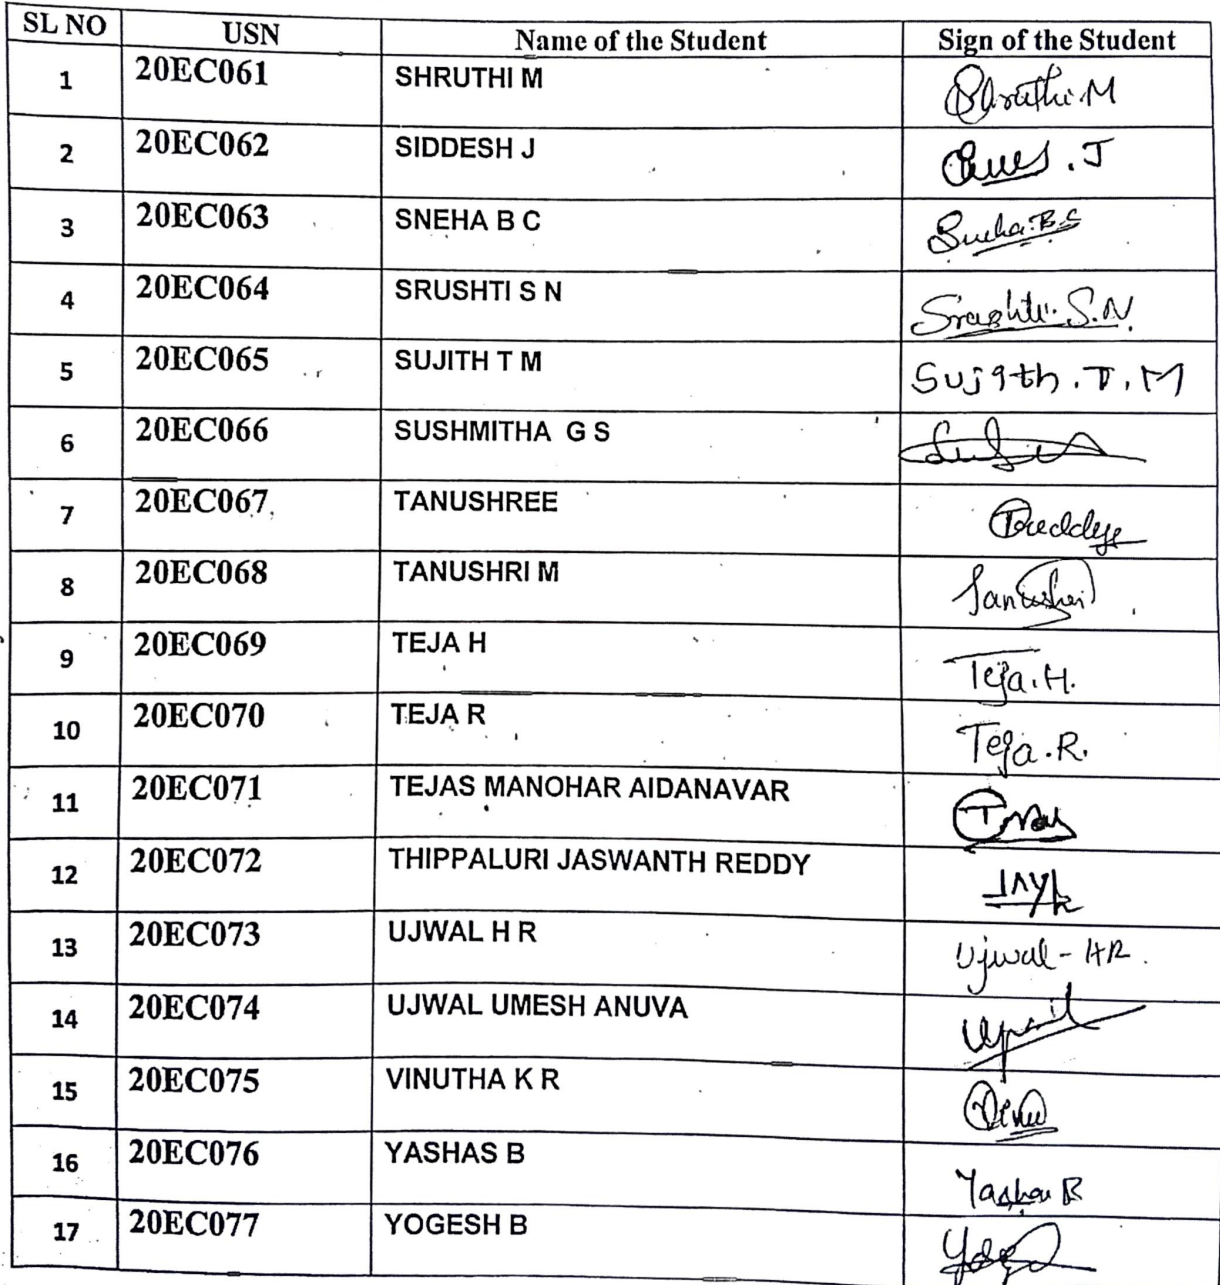 SL NO USN Name of the Student Sign of the Student
1 20EC061 SHRUTHI M Shruthi.M
2 20EC062 SIDDESH J
3 20EC063 SNEHA B C Sneha.B.C
4 20EC064 SRUSHTI S N Srushti.S.N.
5 20EC065 SUJITH T M Sujith.T.M
6 20EC066 SUSHMITHA G S
7 20EC067 TANUSHREE
8 20EC068 TANUSHRI M Tanushri
9 20EC069 TEJA H Teja.H.
10 20EC070 TEJA R Teja.R.
11 20EC071 TEJAS MANOHAR AIDANAVAR
12 20EC072 THIPPALURI JASWANTH REDDY
13 20EC073 UJWAL H R Ujwal-HR.
14 20EC074 UJWAL UMESH ANUVA
15 20EC075 VINUTHA K R
16 20EC076 YASHAS B Yashas B
17 20EC077 YOGESH B